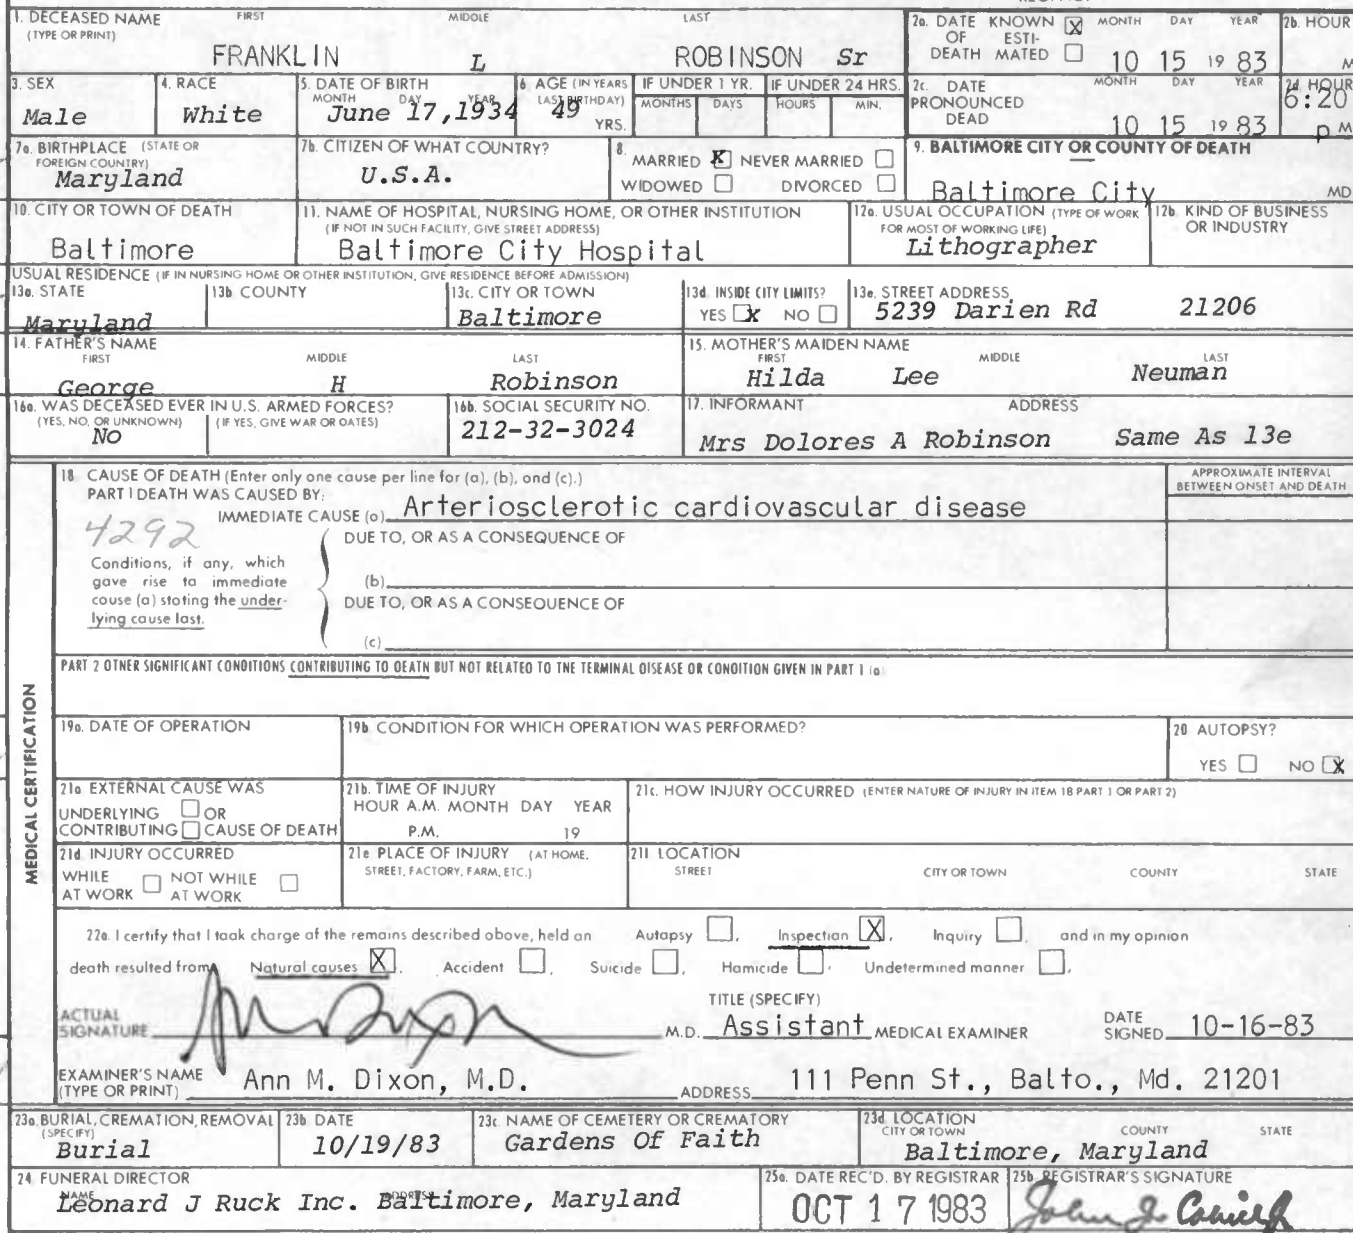 1. DECEASED NAME FIRST MIDDLE LAST
(TYPE OR PRINT)
FRANKLIN L ROBINSON Sr
2a. DATE KNOWN X MONTH DAY YEAR
OF ESTI-
DEATH MATED 10 15 19 83
2b. HOUR
M
3. SEX
Male
4. RACE
White
5. DATE OF BIRTH
MONTH DAY YEAR
June 17,1934
6. AGE (IN YEARS
LAST BIRTHDAY)
49 YRS.
IF UNDER 1 YR.
MONTHS DAYS
IF UNDER 24 HRS.
HOURS MIN.
2c. DATE MONTH DAY YEAR
PRONOUNCED
DEAD 10 15 19 83
2d HOUR
6:20
p M
7a. BIRTHPLACE (STATE OR
FOREIGN COUNTRY)
Maryland
7b. CITIZEN OF WHAT COUNTRY?
U.S.A.
8.
MARRIED X NEVER MARRIED
WIDOWED DIVORCED
9. BALTIMORE CITY OR COUNTY OF DEATH
Baltimore City MD
10. CITY OR TOWN OF DEATH
Baltimore
11. NAME OF HOSPITAL, NURSING HOME, OR OTHER INSTITUTION
(IF NOT IN SUCH FACILITY, GIVE STREET ADDRESS)
Baltimore City Hospital
12a. USUAL OCCUPATION (TYPE OF WORK
FOR MOST OF WORKING LIFE)
Lithographer
12b. KIND OF BUSINESS
OR INDUSTRY
USUAL RESIDENCE (IF IN NURSING HOME OR OTHER INSTITUTION, GIVE RESIDENCE BEFORE ADMISSION)
13a. STATE
Maryland
13b COUNTY
13c. CITY OR TOWN
Baltimore
13d. INSIDE CITY LIMITS?
YES X NO
13e. STREET ADDRESS
5239 Darien Rd 21206
14. FATHER'S NAME
FIRST MIDDLE LAST
George H Robinson
15. MOTHER'S MAIDEN NAME
FIRST MIDDLE LAST
Hilda Lee Neuman
16a. WAS DECEASED EVER IN U.S. ARMED FORCES?
(YES, NO, OR UNKNOWN) (IF YES, GIVE WAR OR DATES)
No
16b. SOCIAL SECURITY NO.
212-32-3024
17. INFORMANT ADDRESS
Mrs Dolores A Robinson Same As 13e
MEDICAL CERTIFICATION
18. CAUSE OF DEATH (Enter only one cause per line for (a), (b), and (c).)
PART I DEATH WAS CAUSED BY:
APPROXIMATE INTERVAL
BETWEEN ONSET AND DEATH
IMMEDIATE CAUSE (a) Arteriosclerotic cardiovascular disease
4292
DUE TO, OR AS A CONSEQUENCE OF
Conditions, if any, which
gave rise to immediate
cause (a) stating the under-
lying cause last.
(b)
DUE TO, OR AS A CONSEQUENCE OF
(c)
PART 2 OTHER SIGNIFICANT CONDITIONS CONTRIBUTING TO DEATH BUT NOT RELATED TO THE TERMINAL DISEASE OR CONDITION GIVEN IN PART 1 (a)
19a. DATE OF OPERATION
19b. CONDITION FOR WHICH OPERATION WAS PERFORMED?
20 AUTOPSY?
YES NO X
21a. EXTERNAL CAUSE WAS
UNDERLYING OR
CONTRIBUTING CAUSE OF DEATH
21b. TIME OF INJURY
HOUR A.M. MONTH DAY YEAR
P.M. 19
21c. HOW INJURY OCCURRED (ENTER NATURE OF INJURY IN ITEM 18 PART 1 OR PART 2)
21d. INJURY OCCURRED
WHILE NOT WHILE
AT WORK AT WORK
21e PLACE OF INJURY (AT HOME,
STREET, FACTORY, FARM, ETC.)
21f LOCATION
STREET CITY OR TOWN COUNTY STATE
22a. I certify that I took charge of the remains described above, held an Autopsy , Inspection X , Inquiry , and in my opinion
death resulted from Natural causes X , Accident , Suicide , Homicide , Undetermined manner ,
ACTUAL
SIGNATURE Ann Dixon M.D.
TITLE (SPECIFY)
Assistant MEDICAL EXAMINER
DATE
SIGNED 10-16-83
EXAMINER'S NAME
(TYPE OR PRINT) Ann M. Dixon, M.D.
ADDRESS 111 Penn St., Balto., Md. 21201
23a. BURIAL, CREMATION, REMOVAL
(SPECIFY)
Burial
23b DATE
10/19/83
23c. NAME OF CEMETERY OR CREMATORY
Gardens Of Faith
23d. LOCATION
CITY OR TOWN COUNTY STATE
Baltimore, Maryland
24 FUNERAL DIRECTOR
NAME ADDRESS
Leonard J Ruck Inc. Baltimore, Maryland
25a. DATE REC'D. BY REGISTRAR
OCT 17 1983
25b. REGISTRAR'S SIGNATURE
John J.